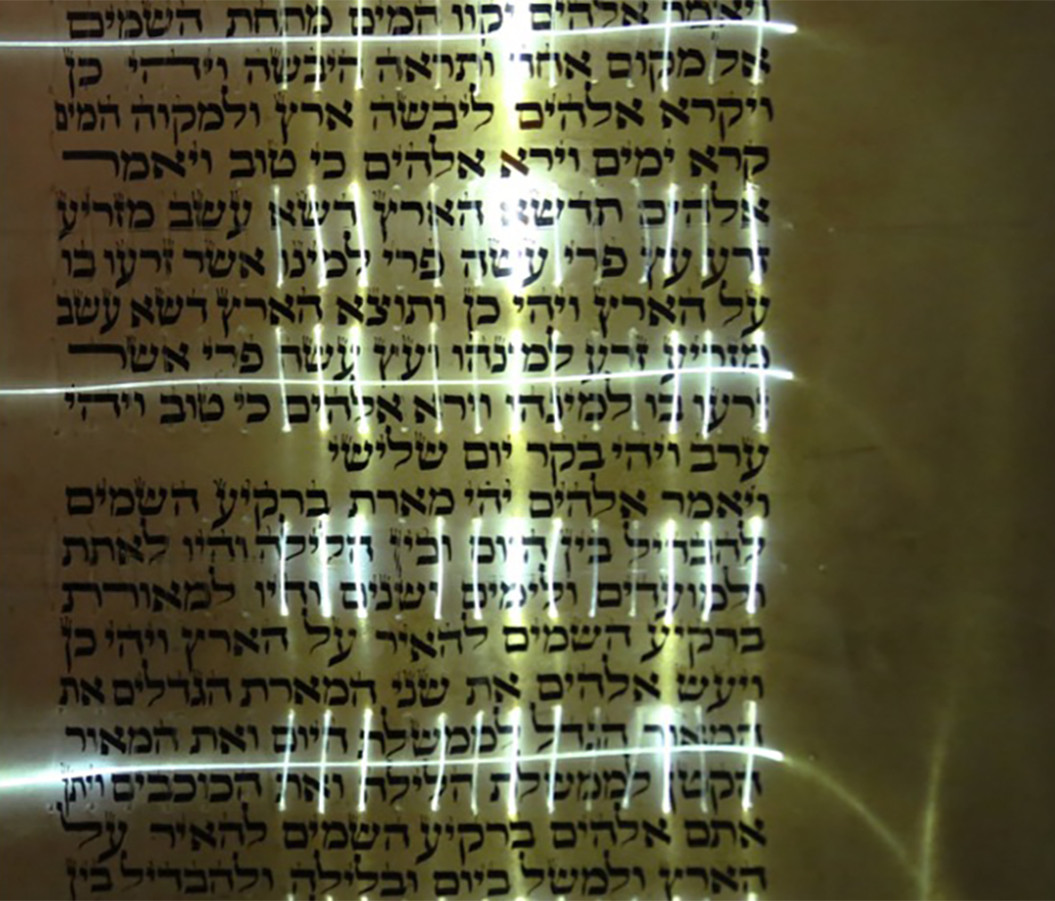 ויאמר אלהים יקוו המים מתחת השמים
אל מקום אחד ותראה היבשה ויהי כן
ויקרא אלהים ליבשה ארץ ולמקוה המים
קרא ימים וירא אלהים כי טוב ויאמר
אלהים תדשא הארץ דשא עשב מזריע
זרע עץ פרי עשה פרי למינו אשר זרעו בו
על הארץ ויהי כן ותוצא הארץ דשא עשב
מזריע זרע למינהו ועץ עשה פרי אשר
זרעו בו למינהו וירא אלהים כי טוב ויהי
ערב ויהי בקר יום שלישי
ויאמר אלהים יהי מארת ברקיע השמים
להבדיל בין היום ובין הלילה והיו לאתת
ולמועדים ולימים ושנים והיו למאורת
ברקיע השמים להאיר על הארץ ויהי כן
ויעש אלהים את שני המארת הגדלים את
המאור הגדל לממשלת היום ואת המאור
הקטן לממשלת הלילה ואת הכוכבים ויתן
אתם אלהים ברקיע השמים להאיר על
הארץ ולמשל ביום ובלילה ולהבדיל בין